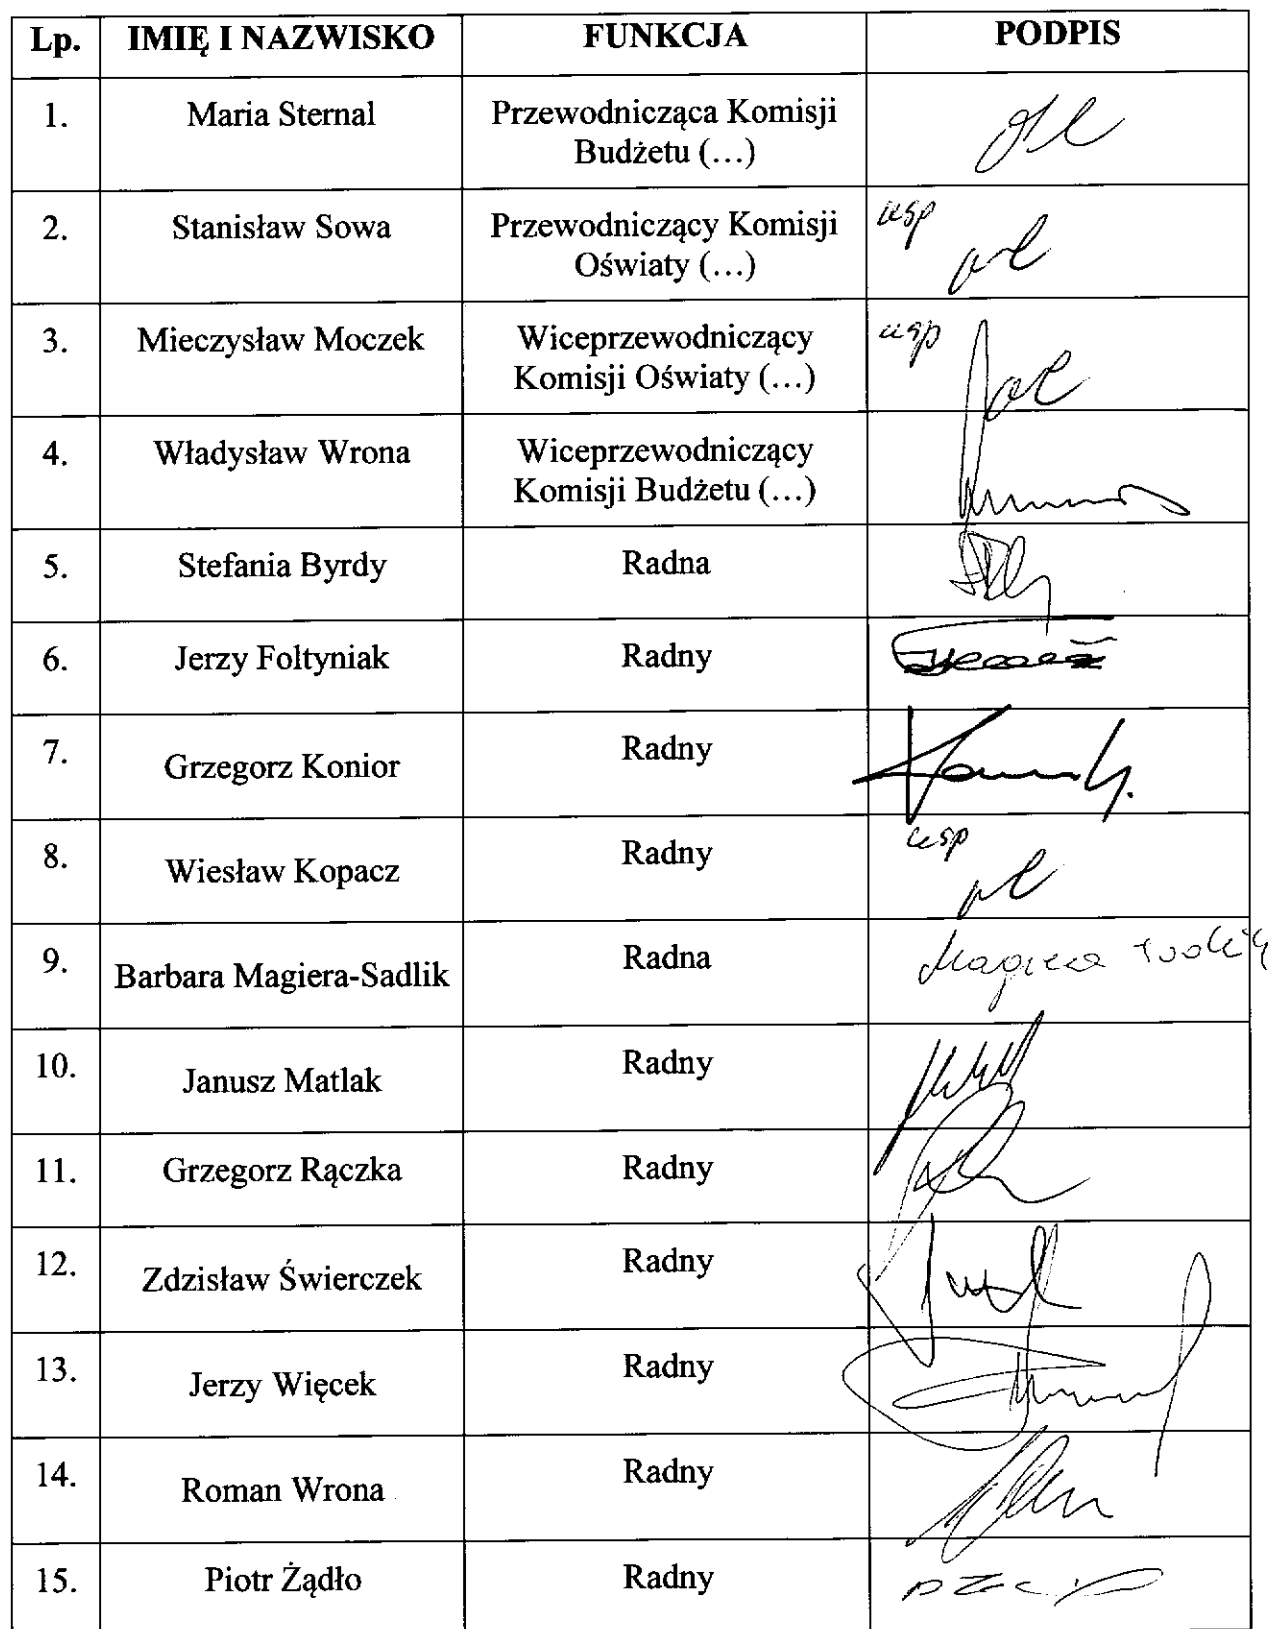 Lp. IMIĘ I NAZWISKO FUNKCJA PODPIS
1. Maria Sternal Przewodnicząca Komisji
Budżetu (…)
2. Stanisław Sowa Przewodniczący Komisji usp
Oświaty (…)
3. Mieczysław Moczek Wiceprzewodniczący usp
Komisji Oświaty (…)
4. Władysław Wrona Wiceprzewodniczący
Komisji Budżetu (…)
5. Stefania Byrdy Radna
6. Jerzy Foltyniak Radny
7. Grzegorz Konior Radny
8. Wiesław Kopacz Radny usp
9. Barbara Magiera-Sadlik Radna Magiera
10. Janusz Matlak Radny
11. Grzegorz Rączka Radny
12. Zdzisław Świerczek Radny
13. Jerzy Więcek Radny
14. Roman Wrona Radny
15. Piotr Żądło Radny